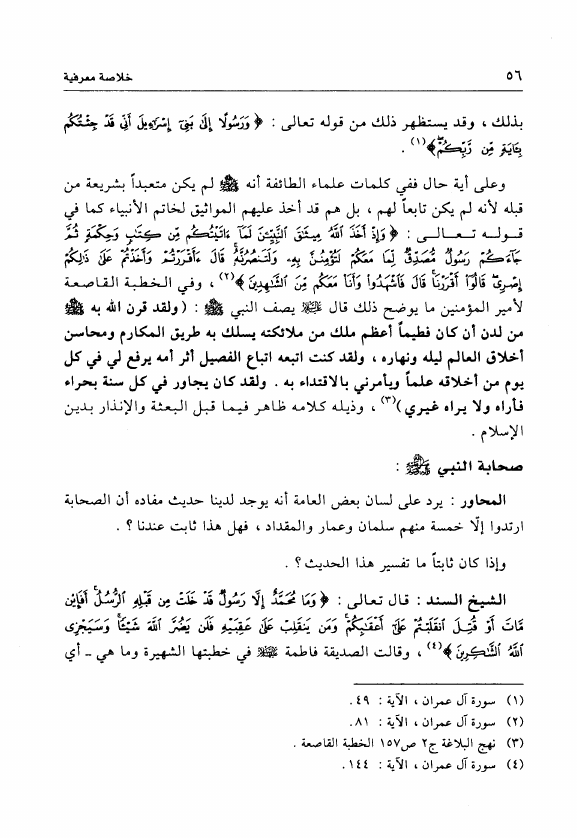 ٥٦ خلاصة معرفية
بذلك ، وقد يستظهر ذلك من قوله تعالى : ﴿ وَرَسُولًا إِلَىٰ بَنِي إِسْرَائِيلَ أَنِّي قَدْ جِئْتُكُم
بِآيَةٍ مِّن رَّبِّكُمْ ﴾(١) .
وعلى أية حال ففي كلمات علماء الطائفة أنه ﷺ لم يكن متعبداً بشريعة من
قبله لأنه لم يكن تابعاً لهم ، بل هم قد أخذ عليهم المواثيق لخاتم الأنبياء كما في
قـولـه تـعـالـى : ﴿ وَإِذْ أَخَذَ اللَّهُ مِيثَاقَ النَّبِيِّينَ لَمَا آتَيْتُكُم مِّن كِتَابٍ وَحِكْمَةٍ ثُمَّ
جَاءَكُمْ رَسُولٌ مُّصَدِّقٌ لِّمَا مَعَكُمْ لَتُؤْمِنُنَّ بِهِ وَلَتَنصُرُنَّهُ قَالَ أَأَقْرَرْتُمْ وَأَخَذْتُمْ عَلَىٰ ذَٰلِكُمْ
إِصْرِي قَالُوا أَقْرَرْنَا قَالَ فَاشْهَدُوا وَأَنَا مَعَكُم مِّنَ الشَّاهِدِينَ ﴾(٢) ، وفي الخطبة القاصعة
لأمير المؤمنين ما يوضح ذلك قال ﵇ يصف النبي ﷺ : (ولقد قرن الله به ﷺ
من لدن أن كان فطيماً أعظم ملك من ملائكته يسلك به طريق المكارم ومحاسن
أخلاق العالم ليله ونهاره ، ولقد كنت اتبعه اتباع الفصيل أثر أمه يرفع لي في كل
يوم من أخلاقه علماً ويأمرني بالاقتداء به . ولقد كان يجاور في كل سنة بحراء
فأراه ولا يراه غيري)(٣) ، وذيله كلامه ظاهر فيما قبل البعثة والإنذار بدين
الإسلام .
صحابة النبي ﷺ :
المحاور : يرد على لسان بعض العامة أنه يوجد لدينا حديث مفاده أن الصحابة
ارتدوا إلّا خمسة منهم سلمان وعمار والمقداد ، فهل هذا ثابت عندنا ؟ .
وإذا كان ثابتاً ما تفسير هذا الحديث ؟ .
الشيخ السند : قال تعالى : ﴿ وَمَا مُحَمَّدٌ إِلَّا رَسُولٌ قَدْ خَلَتْ مِن قَبْلِهِ الرُّسُلُ أَفَإِين
مَّاتَ أَوْ قُتِلَ انقَلَبْتُمْ عَلَىٰ أَعْقَابِكُمْ وَمَن يَنقَلِبْ عَلَىٰ عَقِبَيْهِ فَلَن يَضُرَّ اللَّهَ شَيْئًا وَسَيَجْزِي
اللَّهُ الشَّاكِرِينَ ﴾(٤) ، وقالت الصديقة فاطمة ﵍ في خطبتها الشهيرة وما هي ـ أي
(١) سورة آل عمران ، الآية : ٤٩.
(٢) سورة آل عمران ، الآية : ٨١.
(٣) نهج البلاغة ج٢ ص١٥٧ الخطبة القاصعة .
(٤) سورة آل عمران ، الآية : ١٤٤.